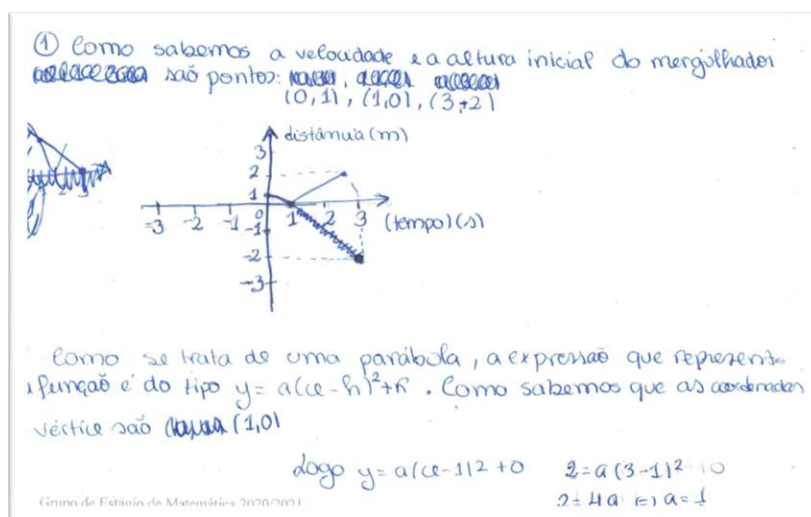 ① Como sabemos a velocidade e a altura inicial do mergulhador
são pontos:
(0,1), (1,0), (3,+2)
distância (m)
3
2
1
-3 -2 -1 0 1 2 3 (tempo) (s)
-1
-2
-3
Como se trata de uma parábola, a expressão que represent
a função é do tipo y = a(x-h)²+k. Como sabemos que as coordenadas
vértice são (1,0)
Logo y = a(x-1)2 + 0 2 = a(3-1)² 0
2 = 4a (=) a = 1
Grupo de Estágio de Matemática 2020/2021